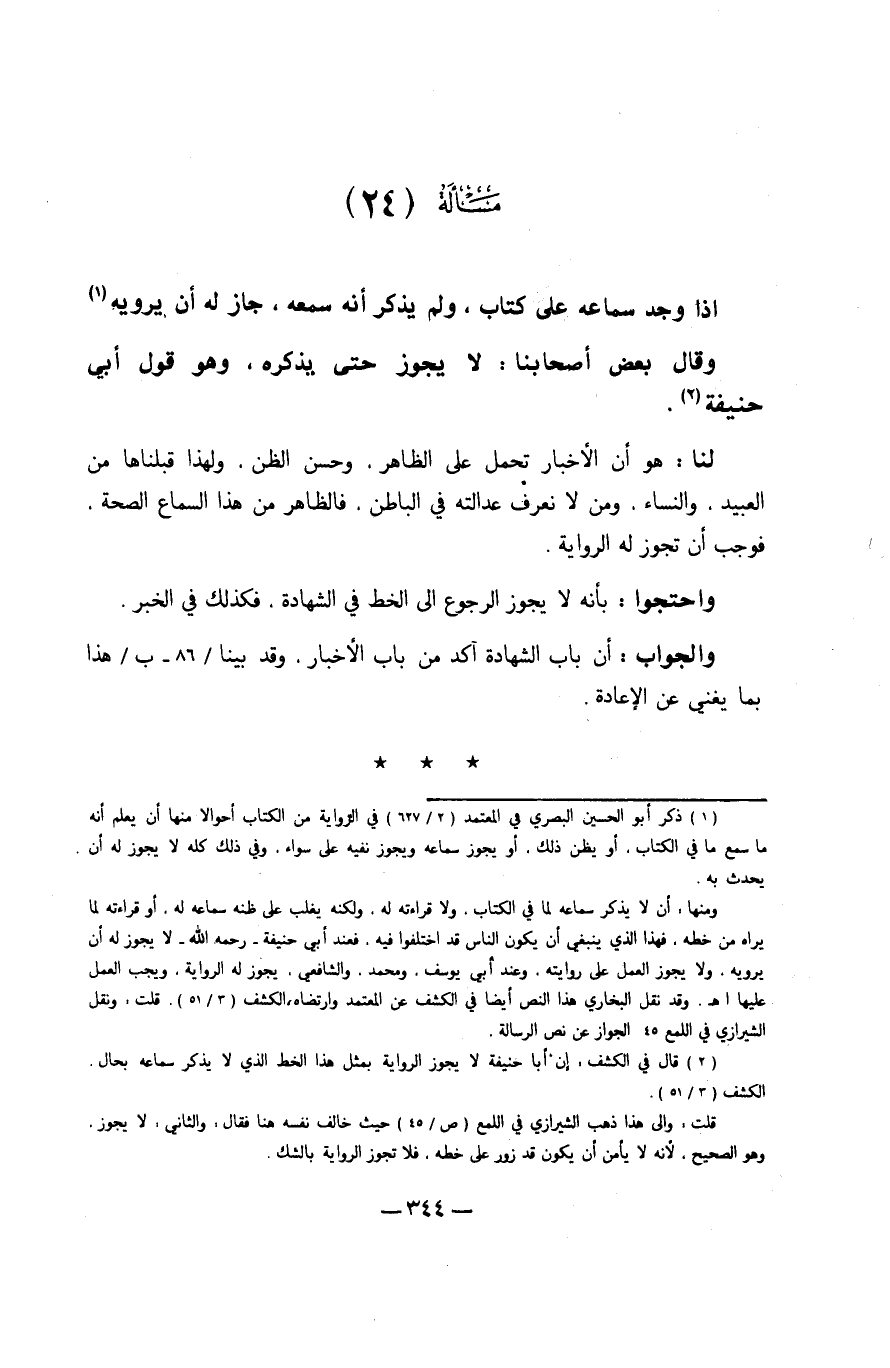 مسألة (٢٤)
اذا وجد سماعه على كتاب ، ولم يذكر أنه سمعه ، جاز له أن يرويه (١)
وقال بعض أصحابنا : لا يجوز حتى يذكره ، وهو قول أبي
حنيفة (٢) .
لنا : هو أن الأخبار تحمل على الظاهر ، وحسن الظن ، ولهذا قبلناها من
العبيد ، والنساء ، ومن لا نعرف عدالته في الباطن ، فالظاهر من هذا السماع الصحة ،
فوجب أن تجوز له الرواية .
واحتجوا : بأنه لا يجوز الرجوع الى الخط في الشهادة ، فكذلك في الخبر .
والجواب : أن باب الشهادة آكد من باب الأخبار ، وقد بينا / ٨٦ ـ ب / هذا
بما يغني عن الإعادة .
★ ★ ★
( ١ ) ذكر أبو الحسين البصري في المعتمد ( ٢ / ٦٢٧ ) في الرواية من الكتاب أحوالا منها أن يعلم أنه
ما سمع ما في الكتاب ، أو يظن ذلك ، أو يجوز سماعه ويجوز نفيه على سواء ، وفي ذلك كله لا يجوز له أن
يحدث به .
ومنها : أن لا يذكر سماعه لما في الكتاب ، ولا قراءته له ، ولكنه يغلب على ظنه سماعه له ، أو قراءته لما
يراه من خطه ، فهذا الذي ينبغي أن يكون الناس قد اختلفوا فيه ، فعند أبي حنيفة ـ رحمه الله ـ لا يجوز له أن
يرويه ، ولا يجوز العمل على روايته ، وعند أبي يوسف ، ومحمد ، والشافعي ، يجوز له الرواية ، ويجب العمل
عليها ا هـ . وقد نقل البخاري هذا النص أيضا في الكشف عن المعتمد وارتضاه،الكشف ( ٣ / ٥١ ) . قلت : ونقل
الشيرازي في اللمع ٤٥ الجواز عن نص الرسالة .
( ٢ ) قال في الكشف : إن أبا حنيفة لا يجوز الرواية بمثل هذا الخط الذي لا يذكر سماعه بحال .
الكشف ( ٣ / ٥١ ) .
قلت : والى هذا ذهب الشيرازي في اللمع ( ص / ٤٥ ) حيث خالف نفسه هنا فقال : والثاني : لا يجوز ،
وهو الصحيح ، لأنه لا يأمن أن يكون قد زور على خطه ، فلا تجوز الرواية بالشك .
— ٣٤٤ —